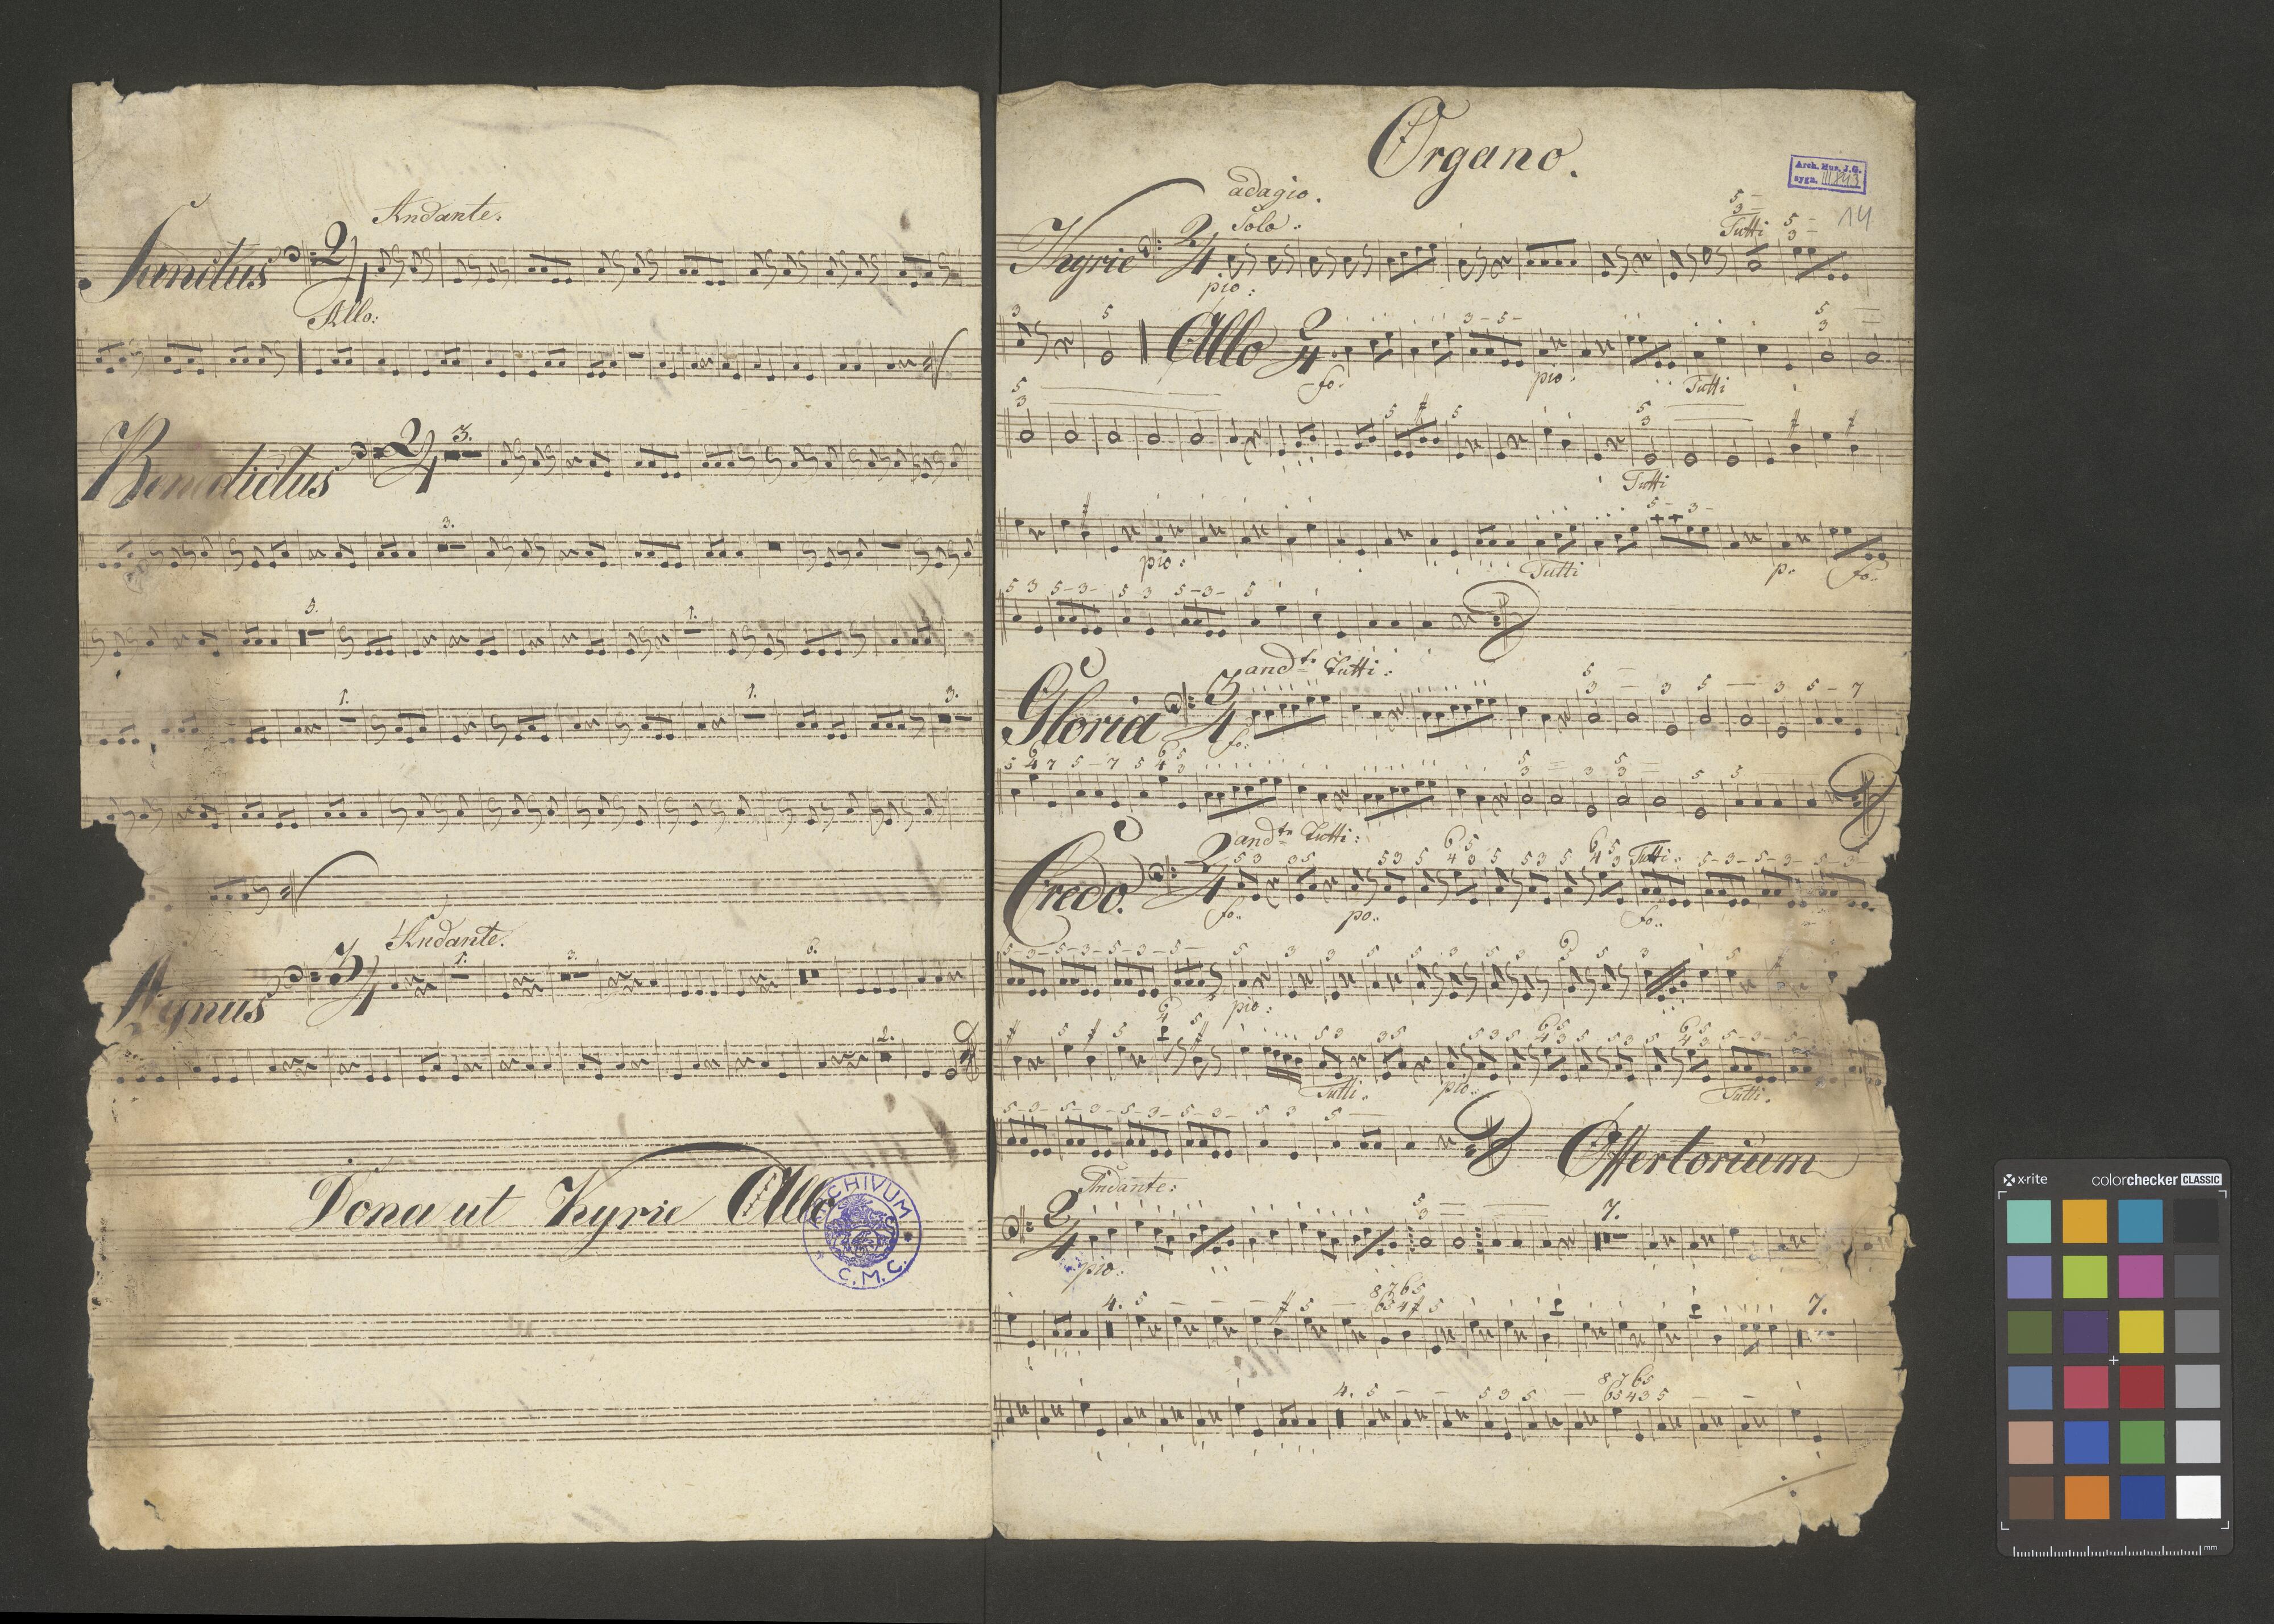 Andante.
Sanctus
Allo:
Benedictus
3.
3.
5.
1.
1.
1.
3.
Andante.
Agnus
1.
3.
6.
2.
Dona ut Kyrie Allo
ARCHIVUM
C.M.C.
Organo.
Arch. Mus. J.G.
sygn. III 843
14
adagio.
Solo.
Tutti
Kyrie 2/4
pio:
Allo 2/4
fo:
pio:
Tutti
Tutti
pio:
Tutti
p.
fo:
andte Tutti:
Gloria 3/4
fo:
andte Tutti:
Credo. 2/4
Tutti:
fo:
po:
fo:
pio:
Tutti.
pio:
Tutti.
Offertorium
Andante:
2/4
7.
pio:
4.
7.
4.
x-rite
colorchecker CLASSIC
mm